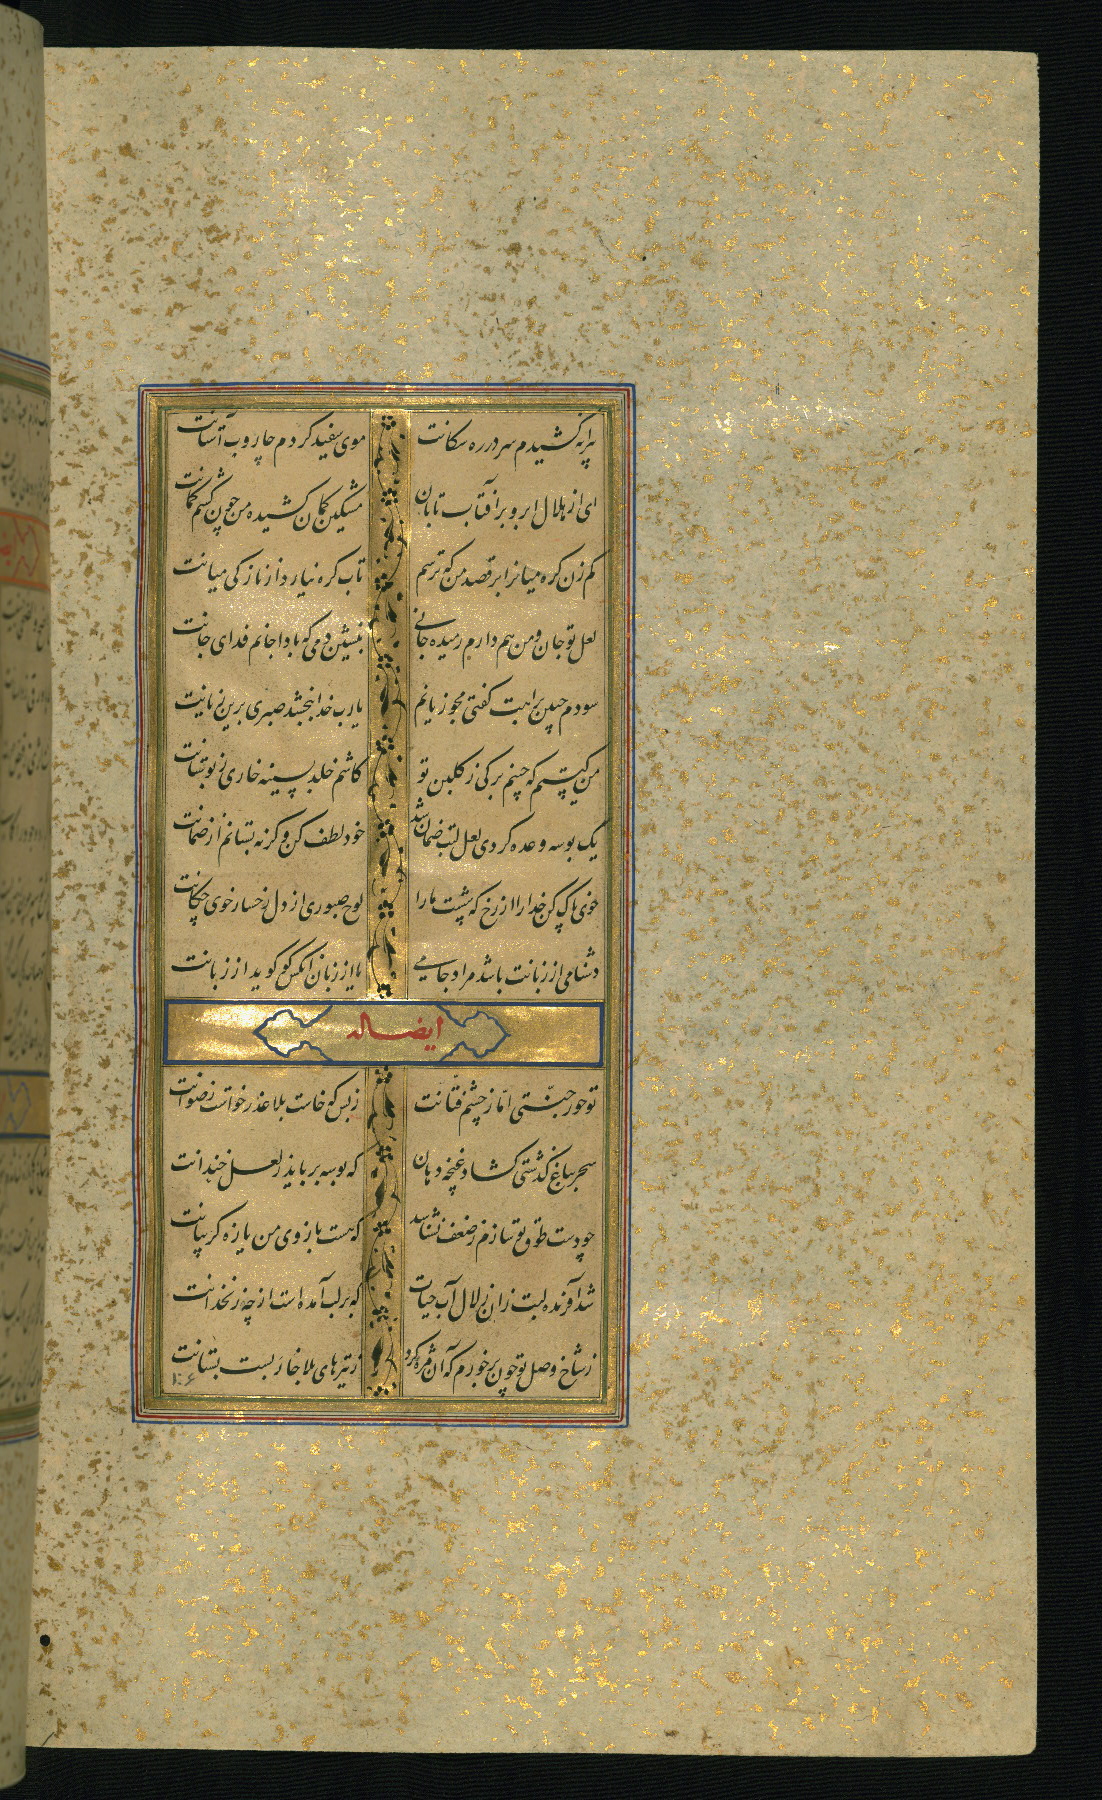 پیرانه سر کشیدم سر در ره سگانت موی سفید کردم جاروب آستانت
ای از هلال ابرو بر آفتاب تابان مشکین کمان کشیده من چون کشم کمانت
کم زن گره میانرا بر قصد من که ترسم تاب گره نیارد از نازکی میانت
لعل تو جان و من هم دارم رمیده جانی بنشین دمی که بادا جانم فدای جانت
سودم جبین براهت گفتی مجو زیانم یارب خدا ببخشد صبری برین زیانت
من کیستم که چینم برگی ز گلبن تو کاشم خلد بسینه خاری ز بوستانت
یک بوسه وعده کردی لعل لبت ضمان شد خود لطف کن وگرنه بستانم از ضمانت
خوی پاک کن خدارا از رخ که شست مارا لوح صبوری از دل رخسار خوی چکانت
دشنامی از زبانت باشد مراد جامی ما از زبان آنکس کو گوید از زبانت
ایضا له
تو حور جنتی اما ز چشم فتانت ز بس که خاست بلا عذر خواست رضوانت
سحر بباغ گذشتی گشاد غنچه دهان که بوسه برباید ز لعل خندانت
چو دست طوق تو سازم ز ضعف نشناسد که هست بازوی من یا زه گریبانت
شد آفریده لبت زان زلال آب حیات که بر لب آمده است از چه زنخدانت
ز شاخ وصل تو چون برخورم که آن مژه کرد ز تیرهای بلا خاربست بستانت